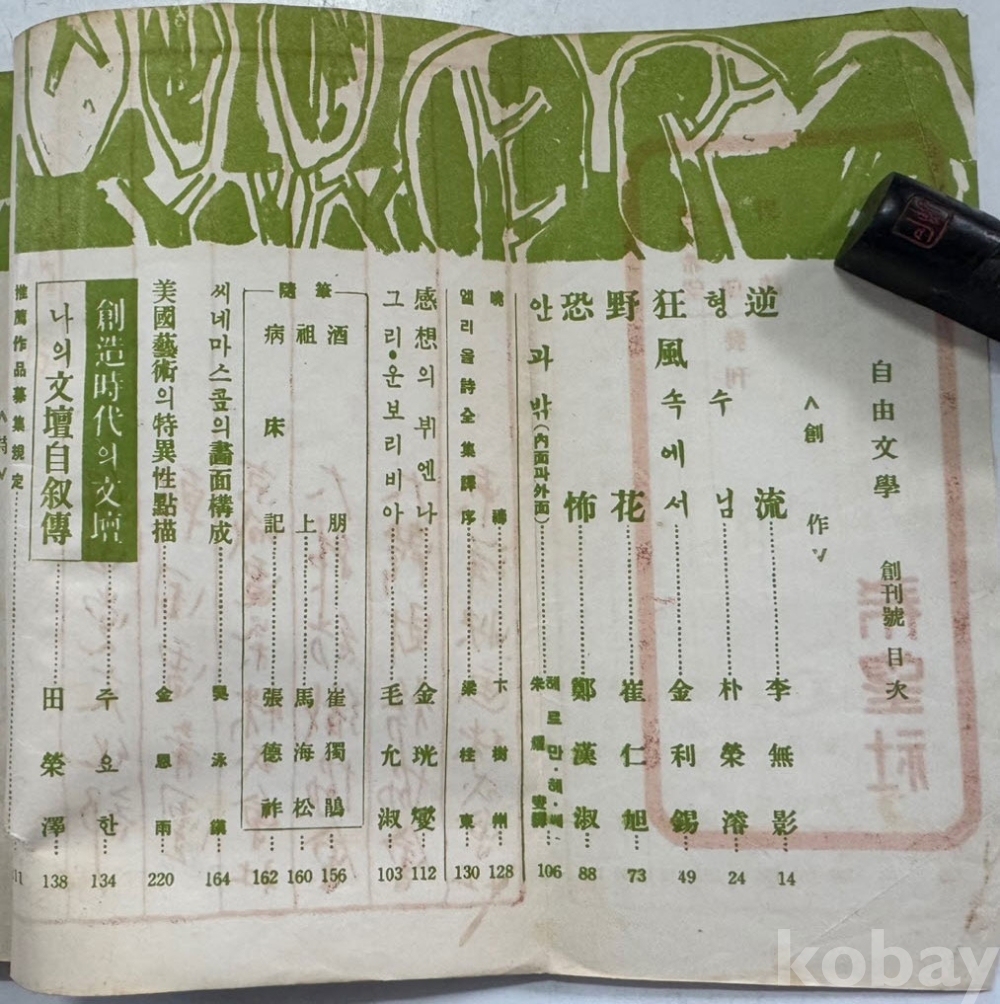 自由文學 創刊號 目次
<創作>
逆流 李無影 14
형수님 朴榮濬 24
狂風속에서 金利錫 49
野花 崔仁旭 73
恐怖 鄭漢淑 88
안과밖(內面과外面) 헤르만·헤세 朱耀燮譯 106
曉禱 卞樹州 128
엘리옽詩全集譯序 梁柱東 130
感想의뷔엔나 金珖燮 112
그리·운보리비아 毛允淑 103
隨筆
酒朋 崔獨鵑 156
祖上 馬海松 160
病床記 張德祚 162
씨네마스콮의畵面構成 吳泳鎭 164
美國藝術의特異性點描 金恩雨 220
創造時代의文壇 주요한 134
나의文壇自叙傳 田榮澤 138
推薦作品募集規定 11
<特>
希望社
kobay